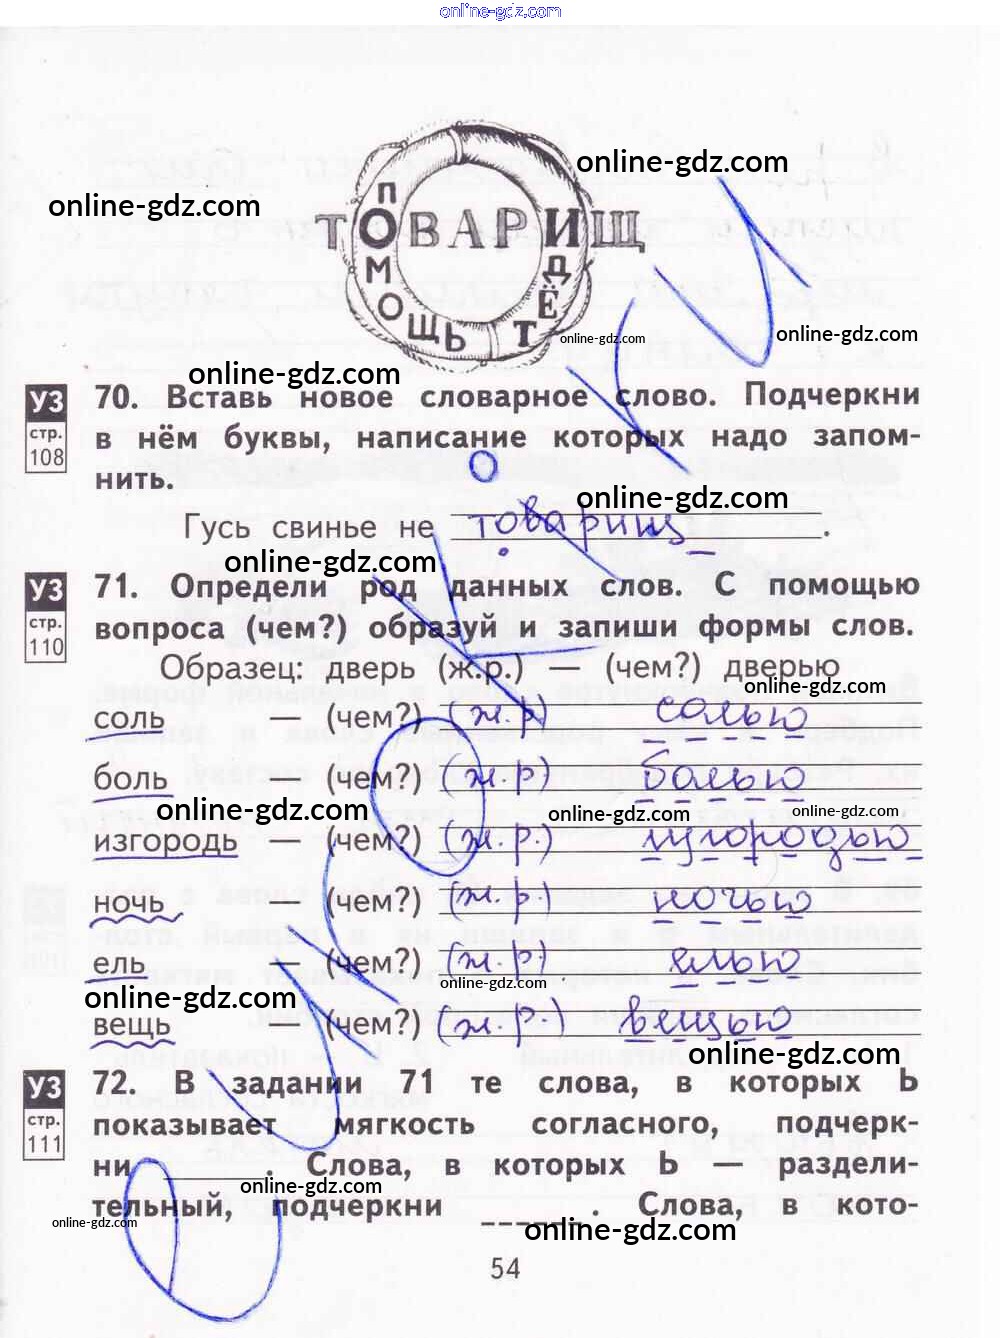 online-gdz.com
online-gdz.com
online-gdz.com
ТОВАРИЩ
ПОМОЩЬ
ИДЁТ
online-gdz.com
online-gdz.com
online-gdz.com
УЗ
стр.
108
70. Вставь новое словарное слово. Подчеркни
в нём буквы, написание которых надо запом-
нить.
online-gdz.com
Гусь свинье не товарищ.
online-gdz.com
УЗ
стр.
110
71. Определи род данных слов. С помощью
вопроса (чем?) образуй и запиши формы слов.
Образец: дверь (ж.р.) — (чем?) дверью
online-gdz.com
соль — (чем?) (ж.р) солью
боль — (чем?) (ж.р) болью
online-gdz.com
online-gdz.com
online-gdz.com
изгородь — (чем?) (ж.р.) изгородью
ночь (чем?) (ж.р.) ночью
ель — (чем?) (ж.р) елью
online-gdz.com
online-gdz.com
вещь — (чем?) (ж.р.) вещью
online-gdz.com
УЗ
стр.
111
72. В задании 71 те слова, в которых Ь
показывает мягкость согласного, подчерк-
ни ______. Слова, в которых Ь — раздели-
online-gdz.com
тельный, подчеркни ______. Слова, в кото-
online-gdz.com
online-gdz.com
54